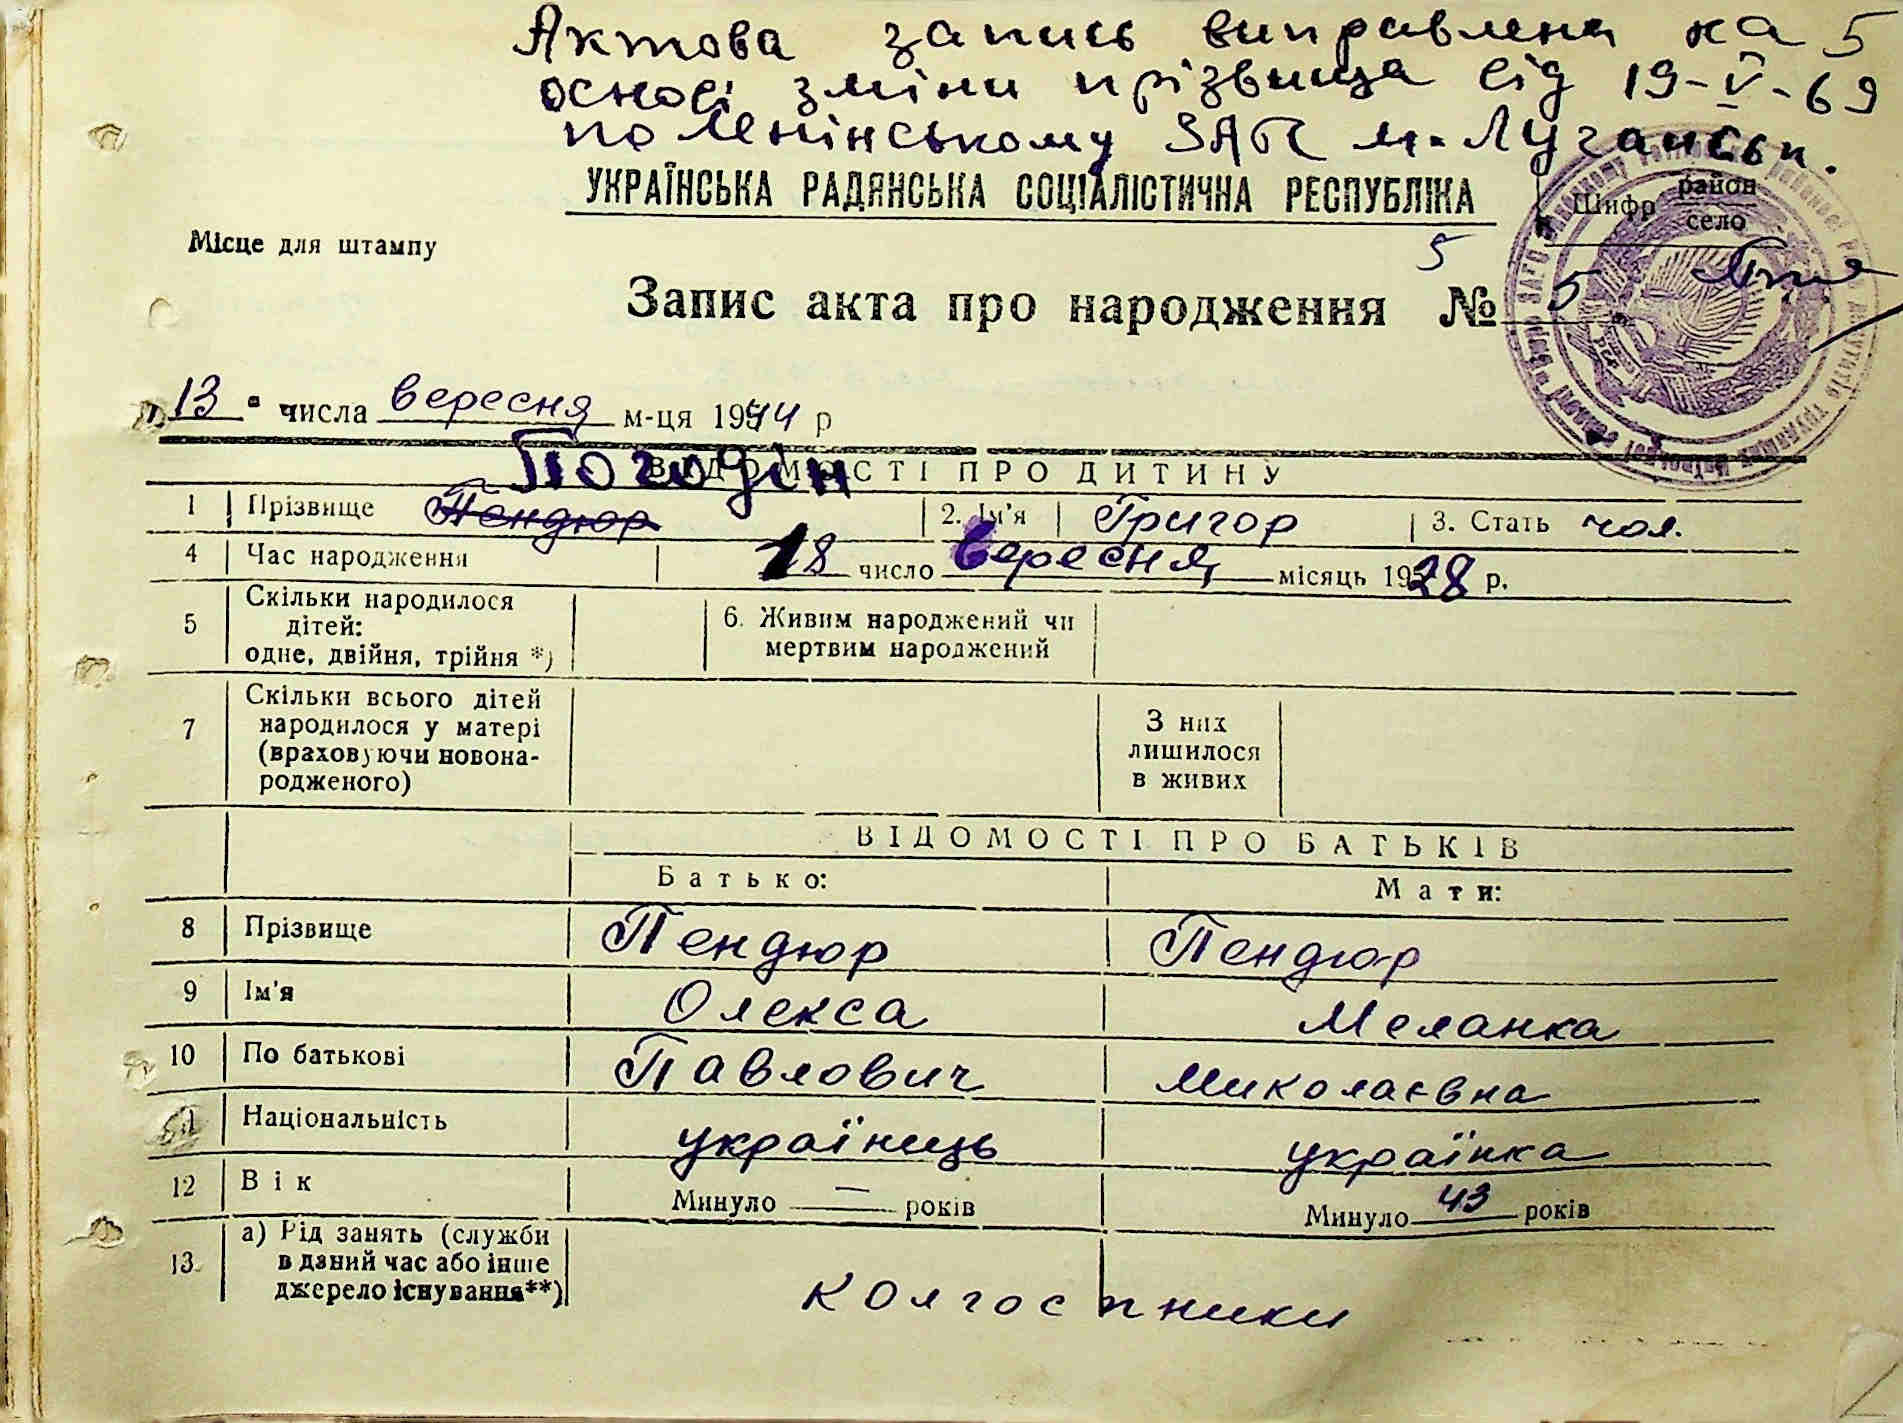 Актова запись виправлена на 5
основі зміни прізвища від 19-V-69
по Ленінському ЗАГС м. Луганськ.
УКРАЇНСЬКА РАДЯНСЬКА СОЦІАЛІСТИЧНА РЕСПУБЛІКА
Шифр район село
Місце для штампу
5
Запис акта про народження № 5
13 числа вересня м-ця 1944 р
ВІДОМОСТІ ПРО ДИТИНУ
Погодін
1 Прізвище Пендюр 2. Ім'я Григор 3. Стать чол.
4 Час народження 18 число вересня місяць 1928 р.
5 Скільки народилося дітей: одне, двійня, трійня *) 6. Живим народжений чи мертвим народжений
7 Скільки всього дітей народилося у матері (враховуючи новонародженого) З них лишилося в живих
ВІДОМОСТІ ПРО БАТЬКІВ
Батько: Мати:
8 Прізвище Пендюр Пендюр
9 Ім'я Олекса Меланка
10 По батькові Павлович Миколаєвна
Національність українець українка
12 Вік Минуло — років Минуло 43 років
13. а) Рід занять (служби в даний час або інше джерело існування**) колгоспники